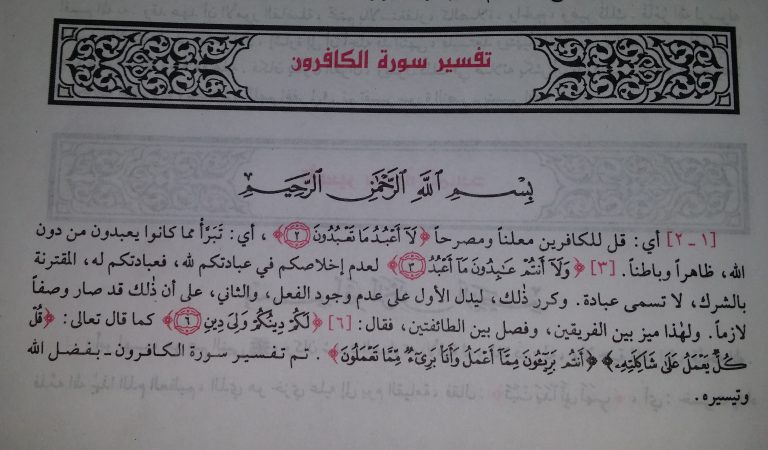 تفسير سورة الكافرون
بِسْمِ اللَّهِ الرَّحْمَٰنِ الرَّحِيمِ
[١ ـ ٢] أي: قل للكافرين معلناً ومصرحاً ﴿لَآ أَعْبُدُ مَا تَعْبُدُونَ ۝٢﴾، أي: تَبَرَّأْ مما كانوا يعبدون من دون
الله، ظاهراً وباطناً. [٣] ﴿وَلَآ أَنتُمْ عَٰبِدُونَ مَآ أَعْبُدُ ۝٣﴾ لعدم إخلاصكم في عبادتكم لله، فعبادتكم له، المقترنة
بالشرك، لا تسمى عبادة. وكرر ذٰلك، ليدل الأول على عدم وجود الفعل، والثاني، على أن ذٰلك قد صار وصفاً
لازماً. ولهٰذا ميز بين الفريقين، وفصل بين الطائفتين، فقال: [٦] ﴿لَكُمْ دِينُكُمْ وَلِىَ دِينِ ۝٦﴾ كما قال تعالى: ﴿قُلْ
كُلٌّ يَعْمَلُ عَلَىٰ شَاكِلَتِهِۦ﴾ ﴿أَنتُم بَرِيٓـُٔونَ مِمَّآ أَعْمَلُ وَأَنَا۠ بَرِىٓءٌ مِّمَّا تَعْمَلُونَ﴾. تم تفسير سورة الكافرون ـ بفضل الله
وتيسيره.